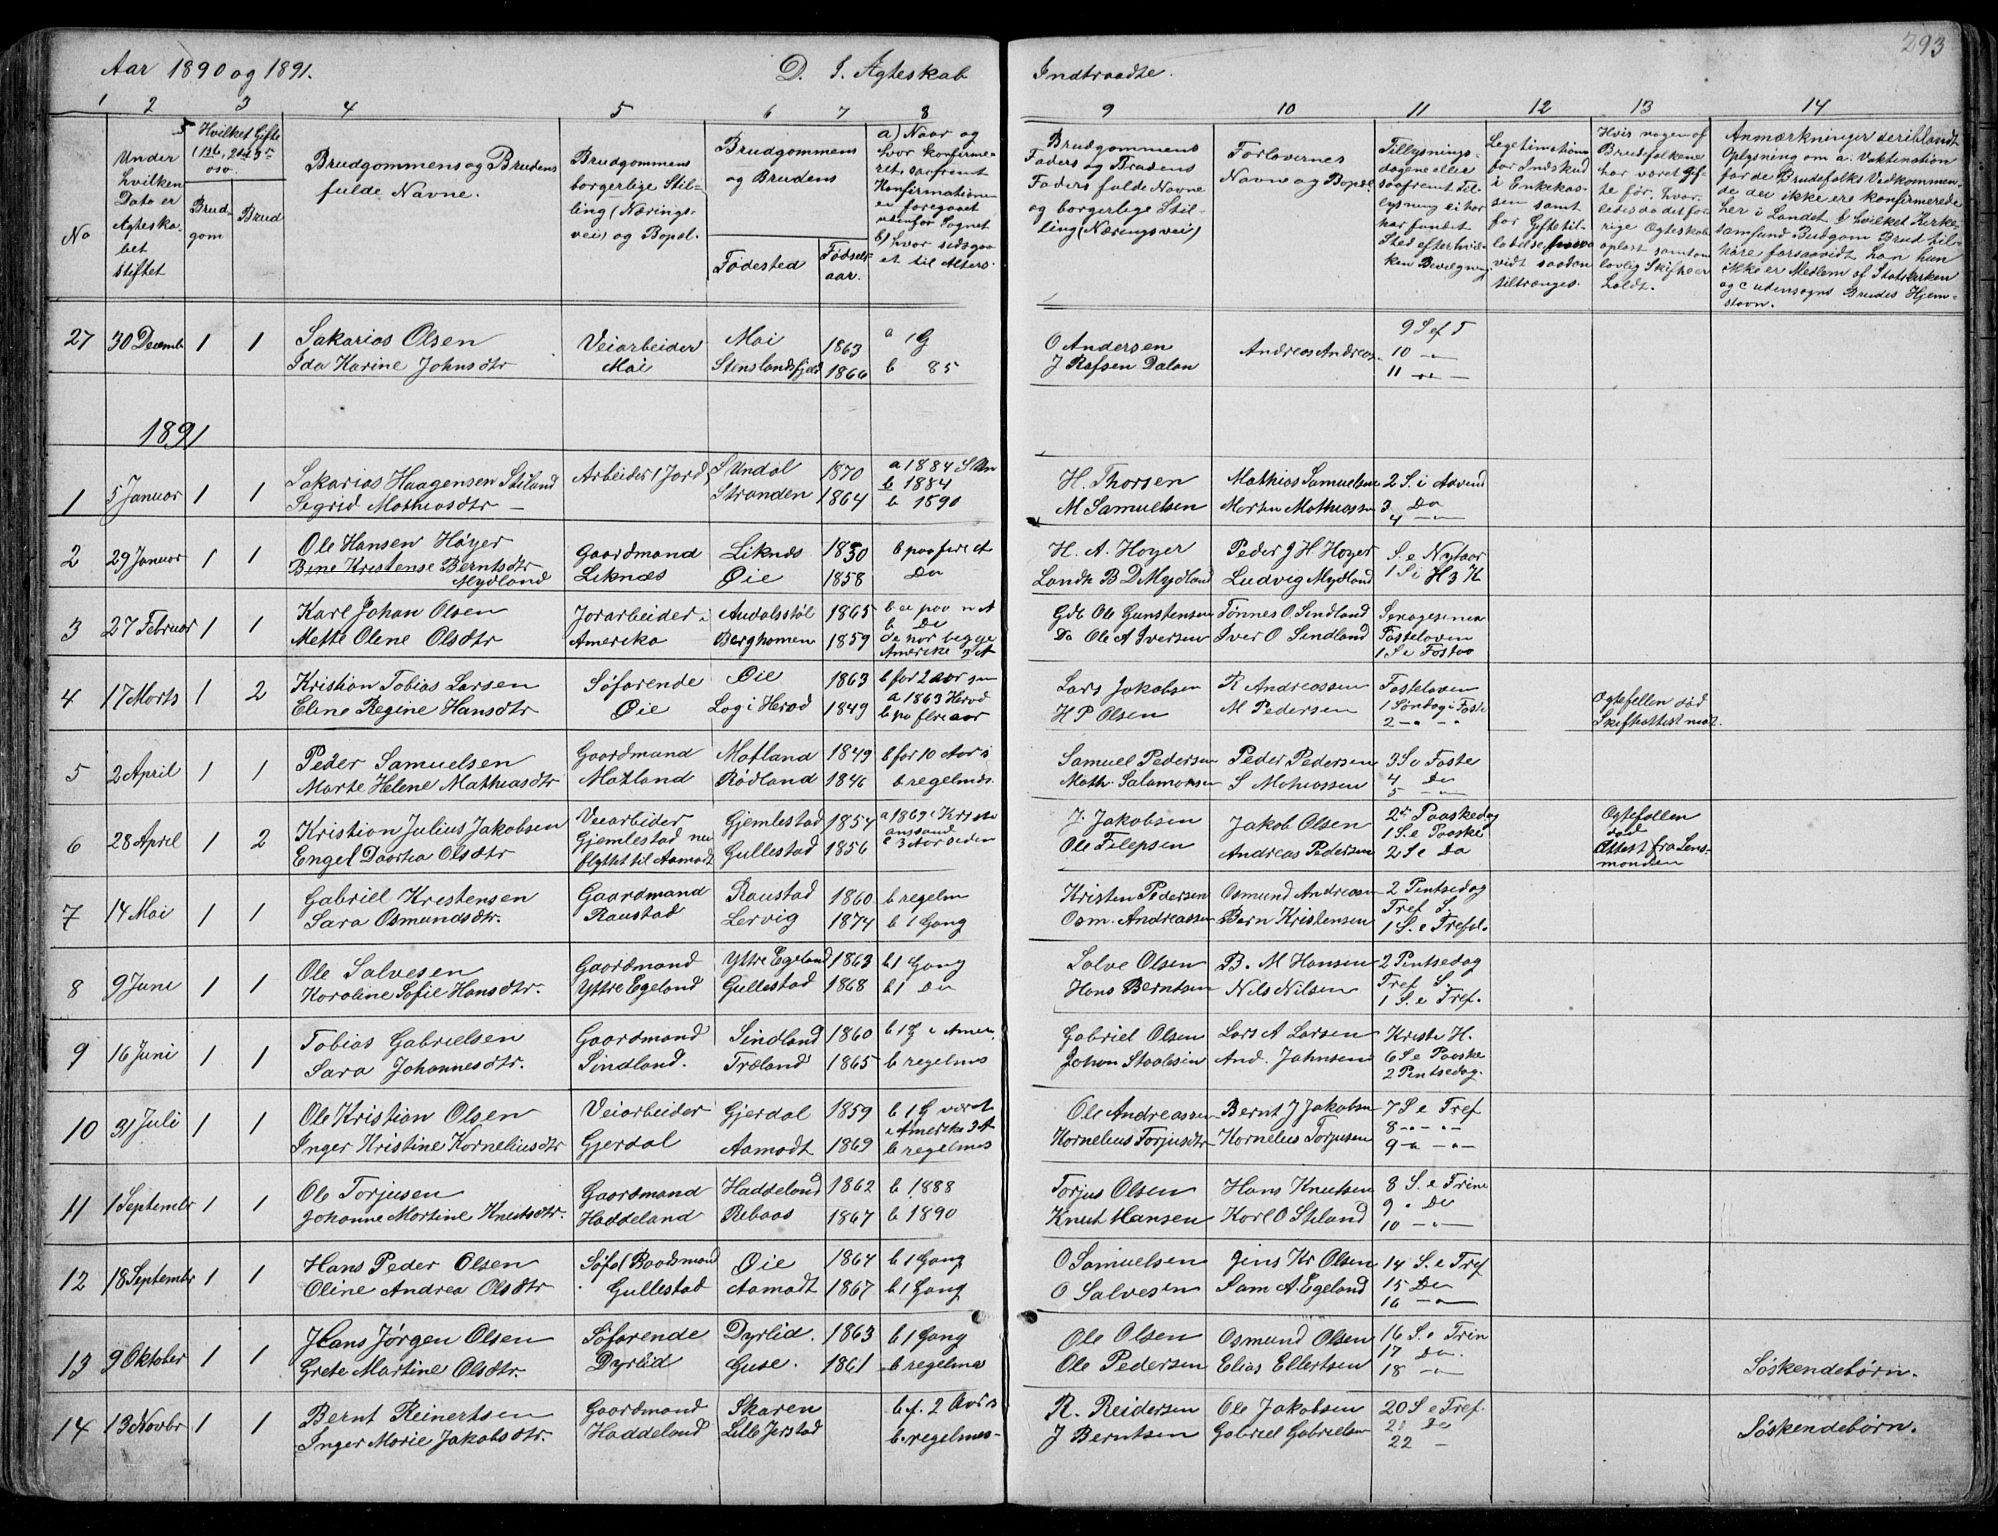 293
Aar 1890 og 1891.
D. I. Ægteskab Indtraadte.
1 2 3 4 5 6 7 8 9 10 11 12 13 14
No
Under hvilken Dato er Ægteskabet stiftet
Hvilket Gifte (1ste, 2det, 3die osv.
Brudgom
Brud
Brudgommens og Brudens fulde Navne.
Brudgommens borgerlige Stilling (Næringsvei) og Bopæl.
Brudgommens og Brudens
Fødested
Fødselsaar.
a) Naar og hvor konfirmeret, saafremt Konfirmationen er foregaaet udenfor Sognet
b) hvor sidsgaaet til Alters.
Brudgommens Faders og Brudens Faders fulde Navne og borgerlige Stilling (Næringsvei)
Forlovernes Navne og Bopæl
Tillysningsdagene eller saafremt Tillysning ei har har fundet Sted efter hvilken Bevilgning
Legitimation for Indskud i Enkekassen samt for Giftetilladelse, forsaavidt saadan tiltrænges.
Hvis nogen af Brudfolkene har været Gifte før, hvorledes da det forrige Ægteskab opløst samt om lovlig Skifte er holdt.
Anmærkninger deriblandt Oplysning om a. Vaktination for de Brudefolks Vedkommende der ikke ere konfirmerede her i Landet b hvilket Kirkesamfund Brudgom Brud tilhøre forsaavidt han hun ikke er Medlem af Statskirken og c udensogns Brudes Hjemstavn.
27 30 Decemb 1 1 Sakarias Olsen Veiarbeider Moi 1863 a 1 G O Andersen Andreas Andreas. 9 S ef T
Ida Karine Johnsdtr Moi Stenslandsfjeld 1866 b 85 J Rafsen Dalan 10 -"-
11 -"-
1891
1 5 Januar 1 1 Sakarias Haagensen Stiland Arbeider i Jord S Undal 1870 a 1884 S Un b 1884 H. Thorsen Mathias Samuelsen 2 S. i Advend
Segrid Mathiasdtr - Stranden 1864 b 1890 M Samuelsen Morten Mathiassen 3 Do
4 -"-
2 29 Januar 1 1 Ole Hansen Høyer Gaardmand Liknes 1850 b paa flere A H. A. Hoyer Peder J H Hoyer S. e Nytaar
Bine Kristense Berntsdtr Mydland Liknæs Øie 1858 Do Landh B D Mydland Ludvig Mydland 1 S i H 3 K
3 27 Februar 1 1 Karl Johan Olsen Jorarbeider i Audalsstøl 1865 b ei paa n A Gdb Ole Gunstensen Tønnes O. Sindland
Mette Oline Olsdtr Amerika Berghomen 1859 b Do de nor begge Amerike Do Ole A Iversen Iver O Sindland Fasteloven
1 S e Fastoo
4 17 Marts 1 2 Kristian Tobias Larsen Søfarende Øie 1863 b for 2 aar sen Lars Jakobsen R Andreassen Fasteloven Ægtefellen død
Eline Regine Hansdtr Øie Log i Herod 1849 a 1863 Herod b pa flere aar H P Olsen M Pedersen 1 Søndag i Faste Skifteattest mot.
2 -"- -"-
5 2 April 1 1 Peder Samuelsen Gaardmand Motland 1849 b for 10 Aar s Samuel Pedersen Peder Pedersen 3 S i Faste
Marte Helene Mathiasdtr Motland Rødland 1846 b regelmæs. Math. Salamonsen S Mathiassen 4 Do
5 -"-
6 28 April 1 2 Kristian Julius Jakobsen Veiarbeider Gjemlestad 1854 a 1869 i Kristiansand J. Jakobsen Jakob Olsen 2den Paaskedag Ægtefællen død
Engel Daartea Olsdtr Gjemlestad nu flyttet til Aamodt Gullestad 1856 3 Aar siden Ole Filepsen Andreas Pedersen 1 S. e Paaske Attest fra Lensmonden
2 S e Do
7 14 Mai 1 1 Gabriel Kristensen Gaardmand Raustad 1860 b regelm Kristen Pedersen Osmund Andreasen 2 Pintsedag
Sara Osmundsdtr. Raustad Lervig 1874 b 1 Gang Osm. Andreassen Bern Kristensen Tref S.
1 S. e Trefol.
8 9 Juni 1 1 Ole Salvesen Gaardmand Yttre Egeland 1863 b 1 Gang Salve Olsen B. M Hansen 2 Pintsedag
Karoline Sofie Hansdtr. Yttre Egeland Gullestad 1868 b 1 Do Hans Berntsen Nils Nilsen Tref S.
1 S. e Tref.
9 16 Juni 1 1 Tobias Gabrielsen Gaardmand Sindland 1860 b 1 G i Amer. Gabriel Olsen Lars A Larsen Kriste H.
Sara Johannesdtr. Sindland. Træland 1865 b regelmæs Johan Staalesen And. Jahnsen 6 S e Paaske
2 Pintsedag.
10 31 Juli 1 1 Ole Kristian Olsen Veiarbeider Gjerdal 1859 b 1 G været i Amerika 3 A Ole Andreassen Bernt J Jakobsen 7 S e Tref
Inger Kristine Korneliusdtr Gjerdal Aamodt 1869 b regelmæs Kornelius Torjusdtr Kornelius Torjusen 8 -"- -"-
9 -"- -"-
11 1 September 1 1 Ole Torjusen Gaardmand Haddeland 1862 b 1888 Torjus Olsen Hans Knutsen 8 S. e Trine
Johanne Martine Knutsdtr. Haddeland Rebaas 1867 b 1890 Knut Hansen Karl O Stiland 9 " Do
10 -"-
12 18 September 1 1 Hans Peder Olsen Søfa (Baadsmand Øie 1864 b 1 Gang O Samuelsen Jens Kr Olsen 14 S. e Tref
Oline Andrea Olsdtr Gullestad Aamodt 1867 b 1 Gang O Salvesen Sam A. Egeland 15 Do
16 -"-
13 9 Oktober 1 1 Hans Jørgen Olsen Søfarende Dyrlid. 1863 b 1 Gang Ole Olsen Osmund Olsen 16 S. e Trin
Grete Martine Olsdtr. Dyrlid Guse. 1861 b regelmæs Ole Pedersen Elias Ellertsen 17 Do. Søskendebørn.
18 -"-
14 13 Novbr 1 1 Bernt Reinertsen Gaardmand Skaren b f. 2 Aar s R. Reidersen Ole Jakobsen 20 S e Tref.
Inger Marie Jakobsdtr. Haddelnd Lille Jerstad b. regelmes- J Berntsen Gabriel Gabrielsen 21 Do Søskendebørn.
22 -